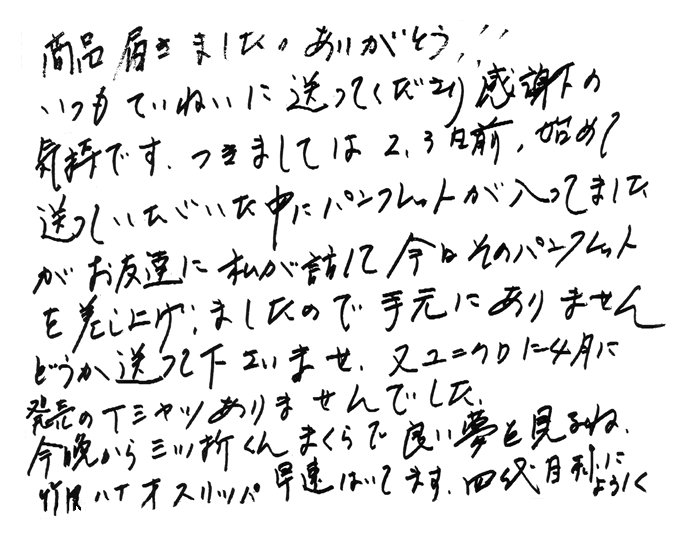 商品届きました。ありがとう!!
いつもていねいに送ってくださり感謝の
気持です。つきましては2、3日前、始めて
送っていただいた中にパンフレットが入ってました
がお友達に私が話して今日そのパンフレット
を差し上げましたので手元にありません
どうか送って下さいませ。又ユニクロに4月に
発売のTシャツありませんでした。
今晩から三ツ折くんまくらで良い夢を見るね。
竹 スリッパ早速はいてます。四代目 によろしく